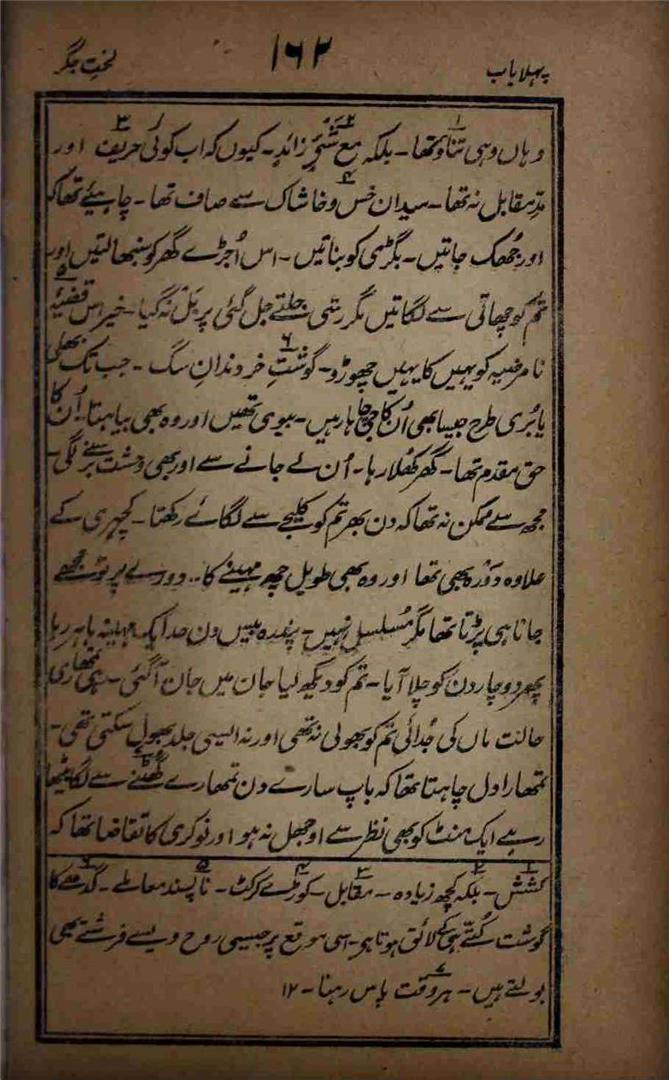 پہلا باب ۱۶۲ لختِ جگر
وہاں وہی تناؤ تھا۔ بلکہ مع شیٔ زائدٍ۔ کیوں کہ اب کوئی حریف اور
مدِّ مقابل نہ تھا۔ میدان خس و خاشاک سے صاف تھا۔ چاہیئے تھا کہ
اور جُھک جاتیں۔ بگڑی کو بناتیں۔ اس اُجڑے گھر کو سنبھالتیں اور
تم کو چھاتی سے لگاتیں مگر رسّی جلتے جل گئی پر بَل نہ گیا۔ خیر اس قضیۂ
نامرضیہ کو یہیں کا یہیں چھوڑو۔ گوشتِ خر و دندانِ سگ۔ جب تک بھلی
یا بُری طرح جیسا بھی اُن کا جی چاہا رہیں۔ بیوی تھیں اور وہ بھی بیاہتا۔ اُن کا
حق مقدم تھا۔ گھر کُھلا رہا۔ اُن کے جانے سے اور بھی وحشت برسنے لگی۔
مجھ سے ممکن نہ تھا کہ دن بھر تم کو کلیجے سے لگائے رکھتا۔ کچہری کے
علاوہ دَورہ بھی تھا اور وہ بھی طویل چھ مہینے کا۔ دورے پر تو مجھے
جانا ہی پڑتا تھا مگر مُسلسل نہیں۔ پندرہ بیس دن حد ایک مہینہ باہر رہا
پھر دو چار دن کو چلا آیا۔ تم کو دیکھ لیا جان میں جان آگئی۔ رہی تمھاری
حالت ماں کی جُدائی تم کو بھولی نہ تھی اور نہ ایسی جلد بھول سکتی تھی۔
تمھارا دل چاہتا تھا کہ باپ سارے دن تمھارے گھٹنے سے لگا بیٹھا
رہے ایک منٹ کو بھی نظر سے اوجھل نہ ہو اور نوکری کا تقاضا تھا کہ
۱ کشش۔ ۲ بلکہ کچھ زیادہ۔ ۳ مقابل۔ ۴ کوڑے کرکٹ۔ ۵ ناپسند معاملے۔ ۶ گدھے کا
گوشت کُتّے ہی کے لائق ہوتا ہو۔ اسی موقع پر جیسی روح ویسے فرشتے بھی
بولتے ہیں۔ ۷ ہر وقت پاس رہنا۔ ۱۲